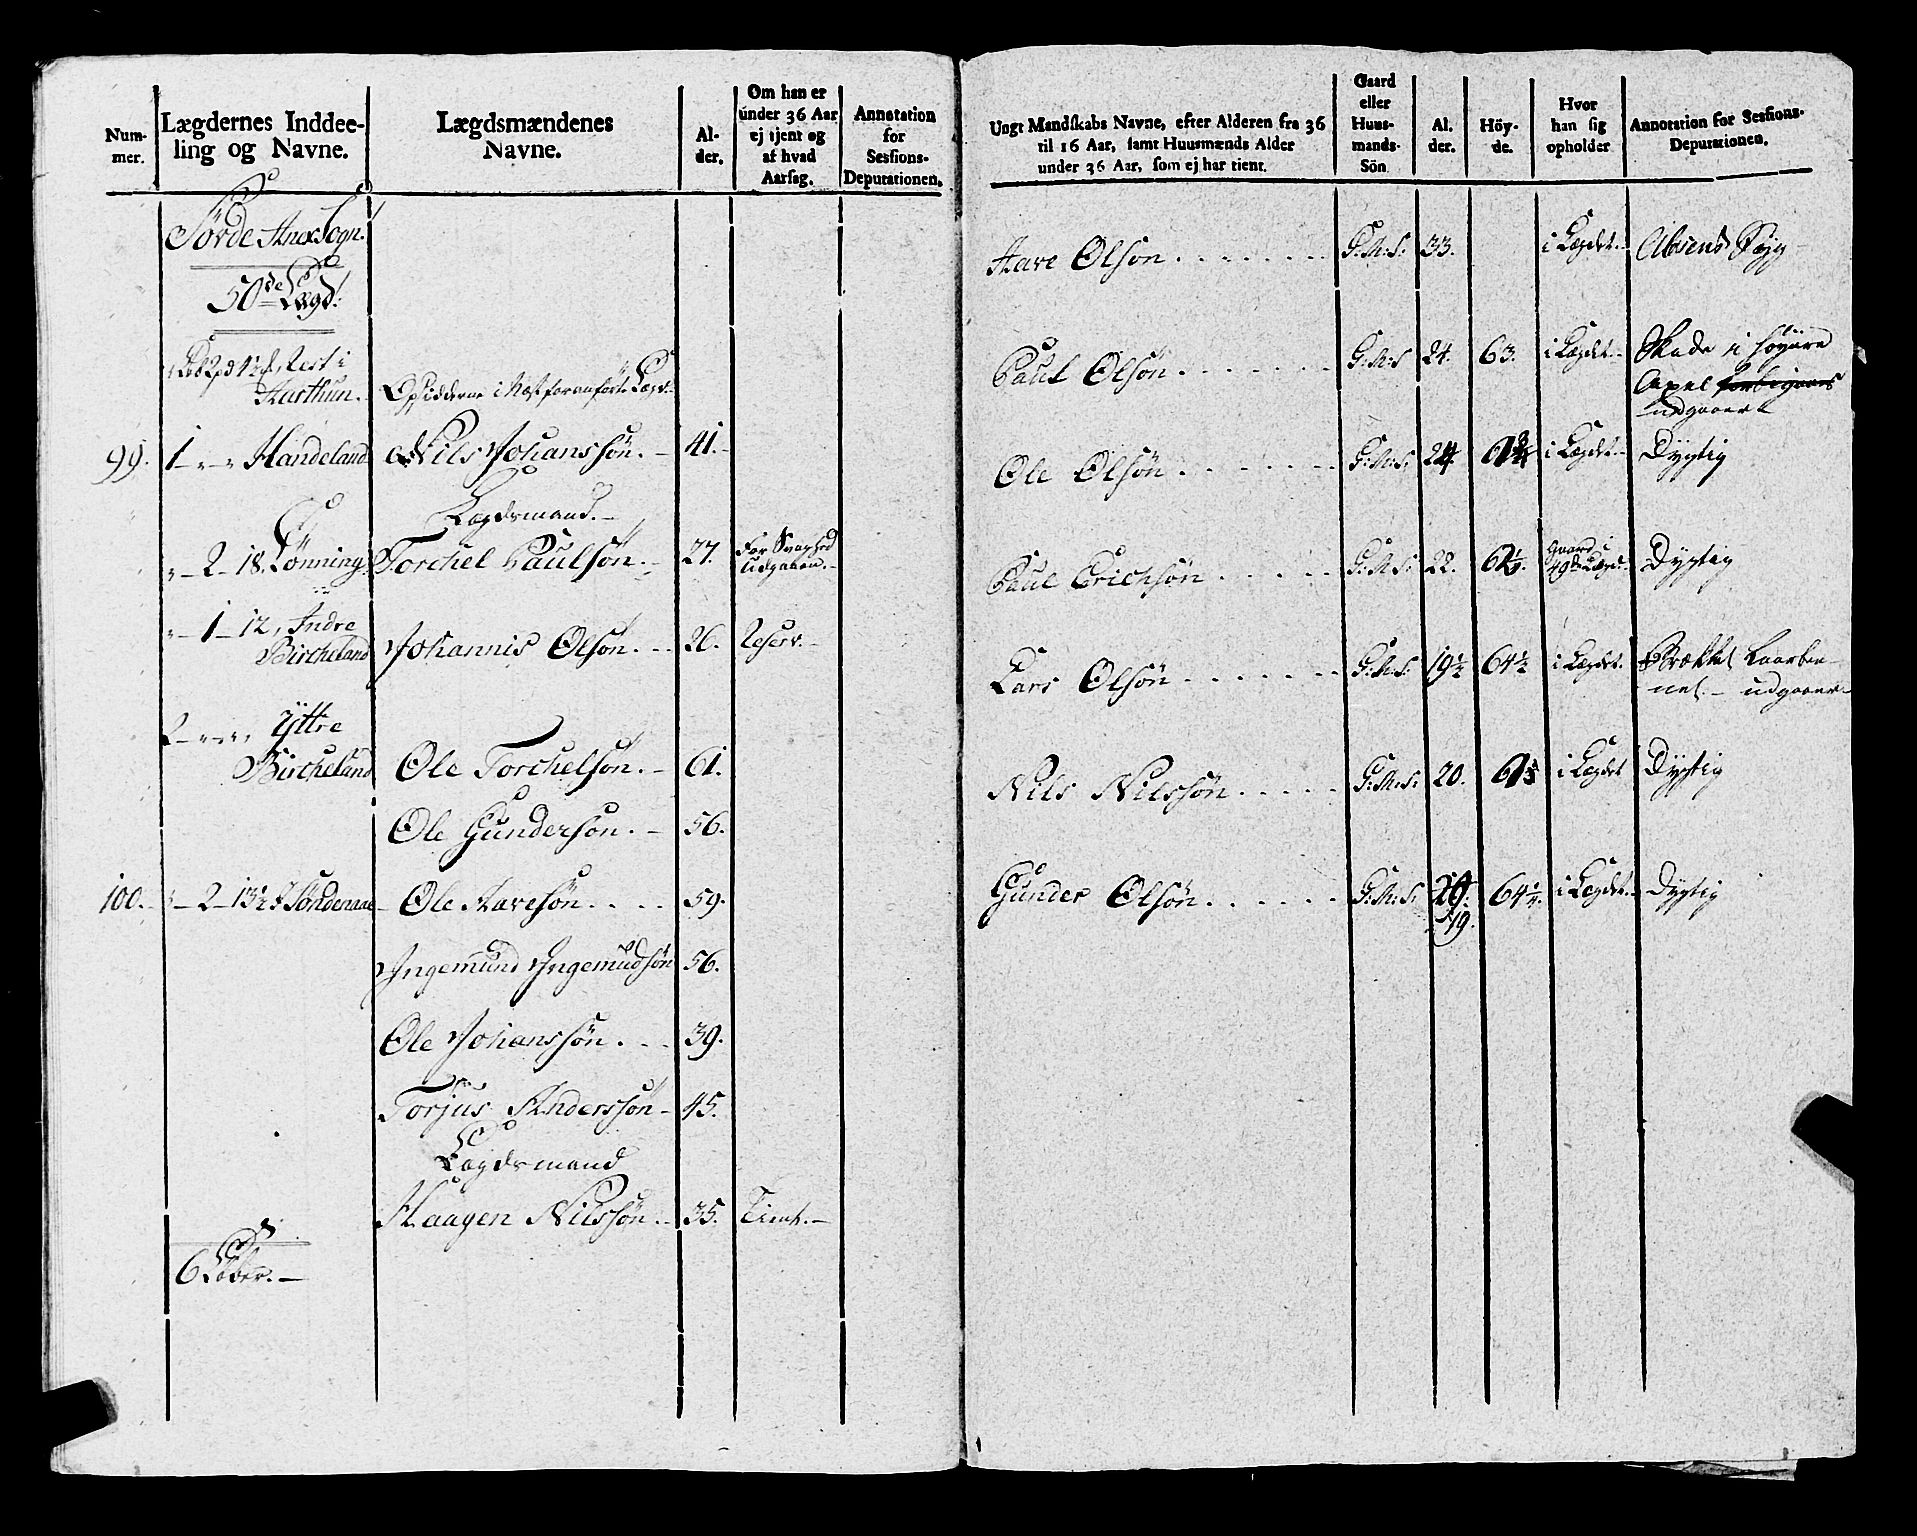 Num-
mer.
Lægdernes Inddee-
ling og Navne.
Lægdsmændenes
Navne.
Al-
der.
Om han er
under 36 Aar
ej tjent og
af hvad
Aarsag.
Annotation
for
Sessions-
Deputationen.
Sørde Anex Sogn.
50de Lægd.
Rest i
Aarthun.
Opsidderne i Næst foranførte Lægd.
99. 1 Handeland Nils Johanssøn. 41.
Lægdsmand.
2 - 18. Lønning. Torchel Paulsøn. 27. For Svaghed
Udgaaen.
1 - 12, Indre
Bircheland Johannis Olsøn. 26. Reserv.
2 Yttre
Bircheland Ole Torchelsøn. 61.
Ole Gundersøn. 56.
100. 2 - 13½ Søndenaae Ole Aavesøn 59.
Ingemund Ingemudsøn 56.
Ole Johanssøn. 39.
Torjus Anderssøn 45.
Lægdsmand
Haagen Nilssøn. 35. Tient.
6 Løber.
Ungt Mandskabs Navne, efter Alderen fra 36
til 16 Aar, samt Huusmænds Alder
under 36 Aar, som ej har tient.
Gaard
eller
Huus-
mands-
Sön
Al.
der.
Höy-
de.
Hvor
han sig
opholder
Annotation for Sessions-
Deputationen.
Aave Olson G:M:S: 33. i Lægdet. Absens Syg
Paul Olsøn G:M:S 24. 63. i Lægdet. Skade i høyere
Axel forbigaaes
udgaaer
Ole Olsøn G:M:S: 24 i Lægdet. Dygtig
Paul Erichsøn G:M:S: 22. 61½. Gaard i
49de Lægd. Dygtig
Lars Olsøn G:M:S: 19½ 64½ i Lægdet. Brækket Laarbee-
net. udgaaer
Nils Nilssøn G:M:S: 20. i Lægdet Dygtig
Gunder Olsøn G:M:S: 19. 64¼. i Lægdet. Dygtig